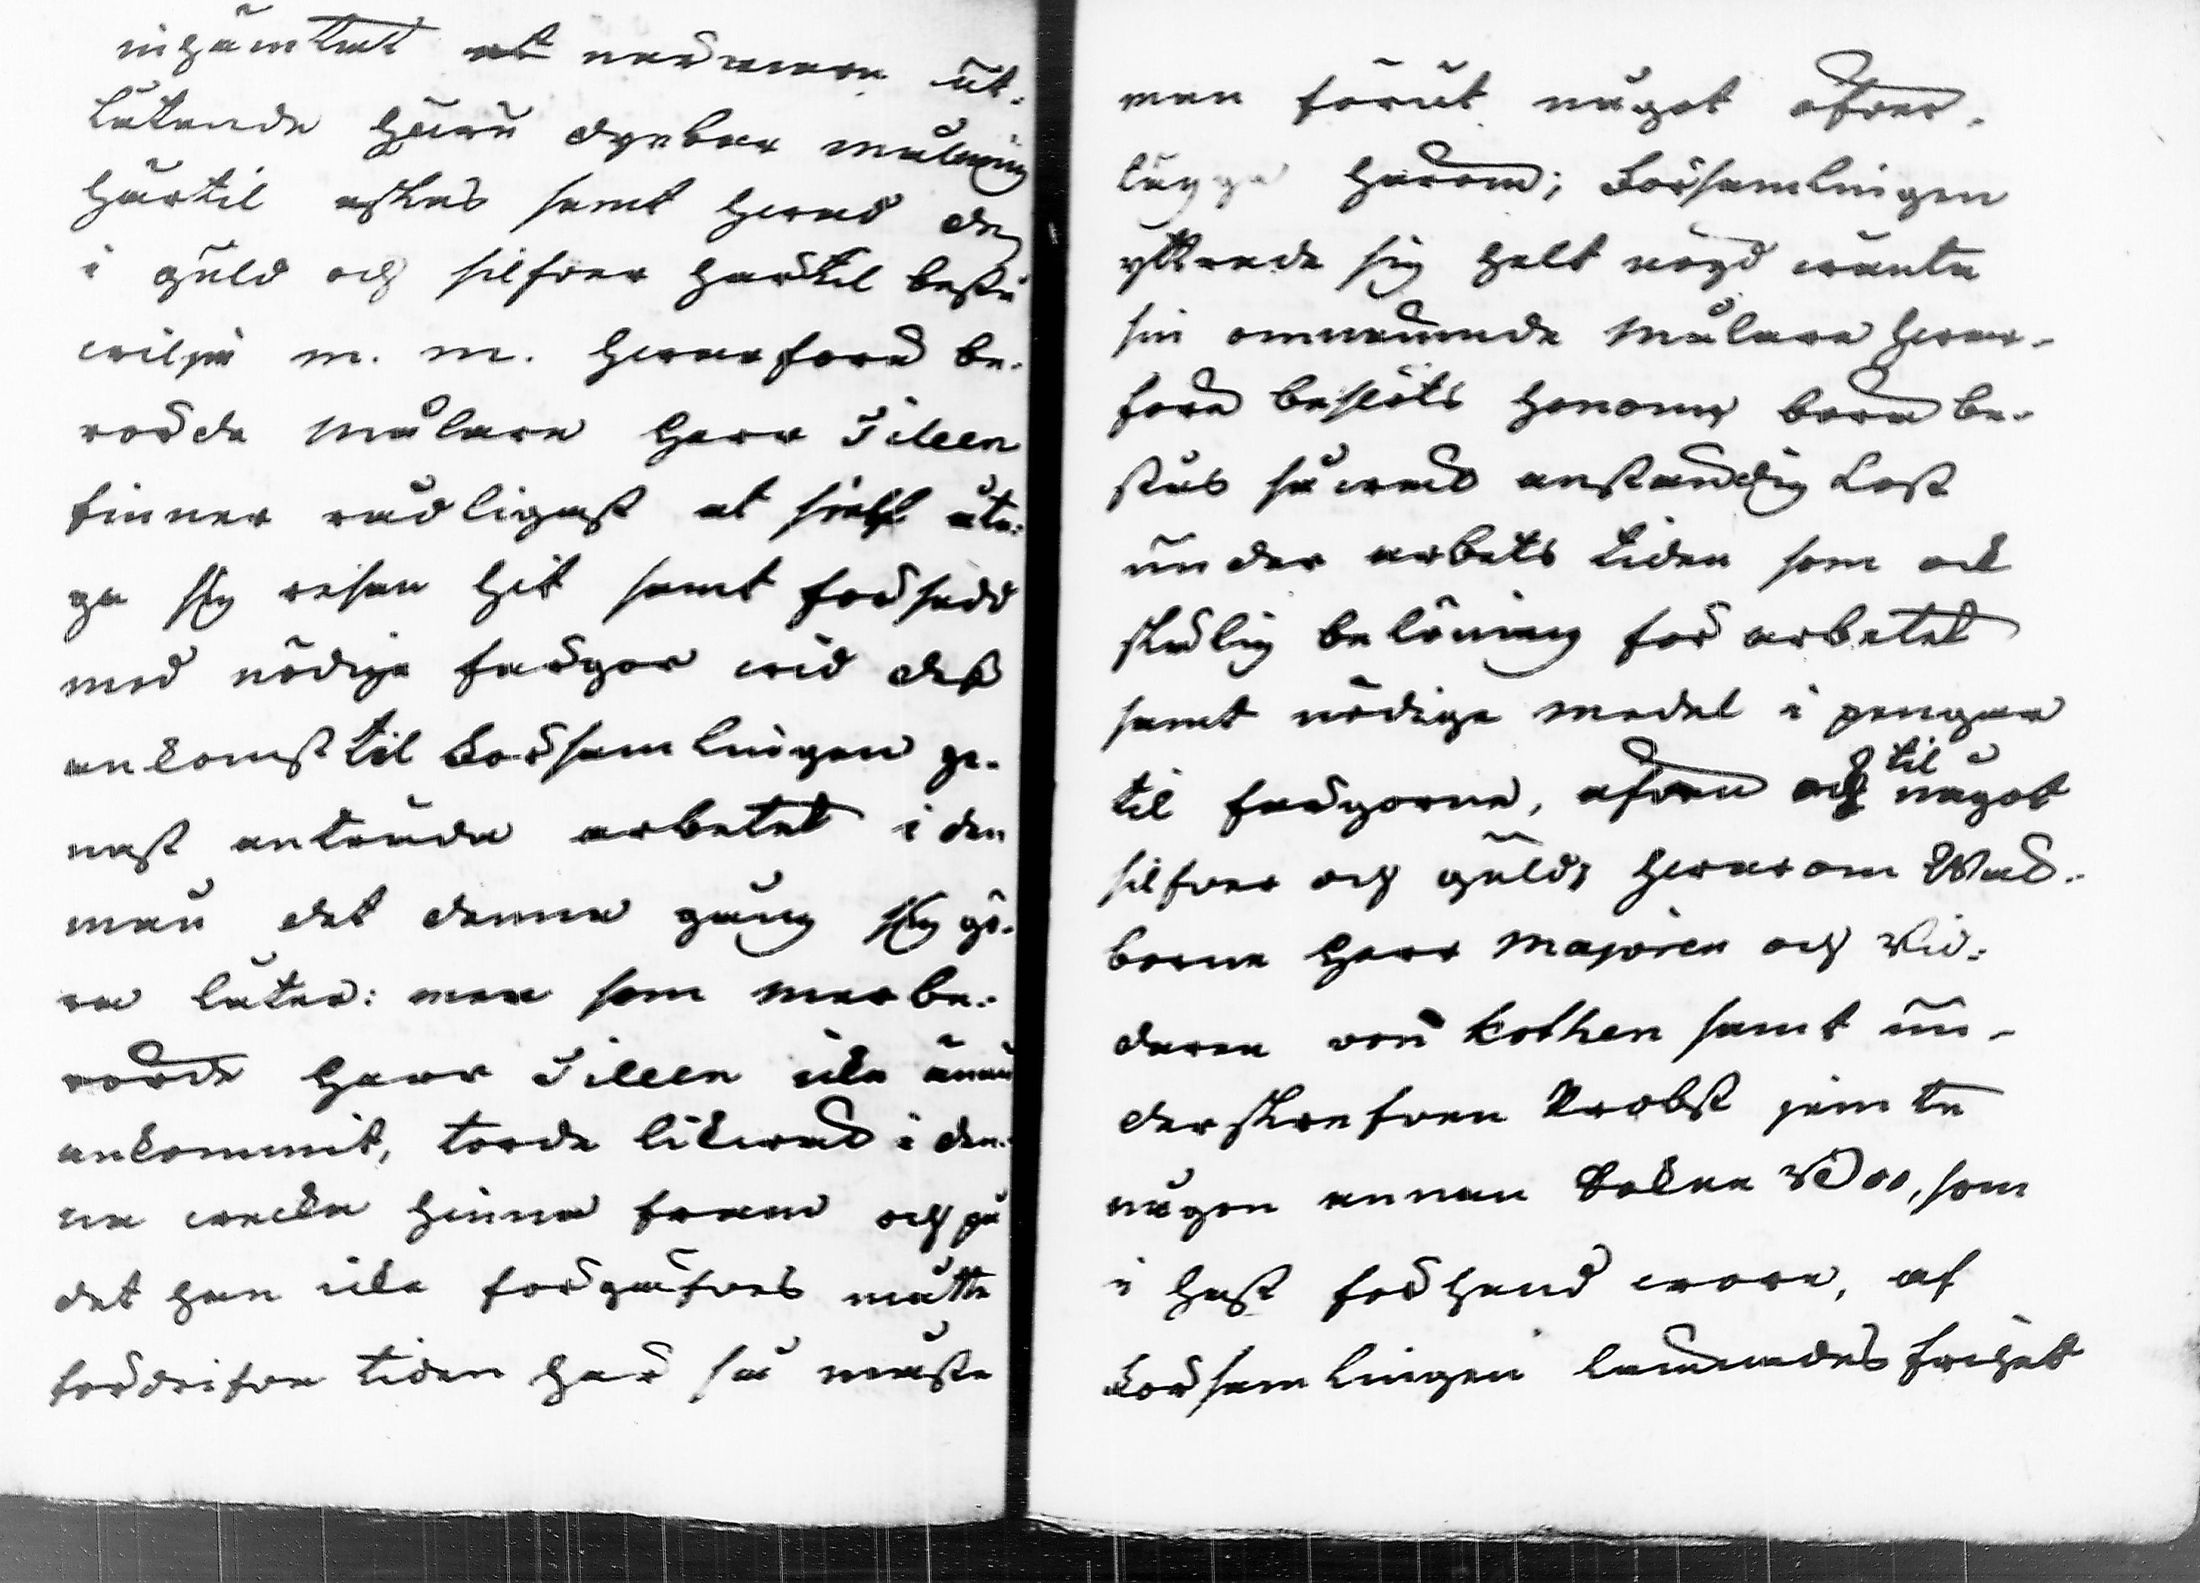 inhämtat et närmare ut-
låtande huru dyrbar målning
härtil astas samt hwad de
i guld och silfwer härtil bestå
wilja m. m. Hwarföre be-
rörde Målare Herr Tileen
finner rådligast at sielf åta-
ga sig resan hit samt försedd
med nödige färgor wid deß
ankomst til Församlingen ge-
nast anträda arbetet i den
mån det denna gång sig gö-
ra låter: men som merbe-
rörde Herr Tileen icke ännu
ankommit, torde likwäl i den-
na wecka hinna fram och på
det han icke förgäfwes måtte
fördrifwa tiden här så måste
man förut något öfwer-
lägga härom; Församlingen
yttrade sig helt nögd wänta
sin omnämnde Målare hwar-
före beslöts honom böra be-
stås så wäl anständig kost
under arbets tiden som ock
skälig belöning för arbetet
samt nödige medel i pengar
til färgorne, äfwen och til något
silfwer och guld; hwarom Wäl-
borne Herr Majoren och Rid-
daren von Kothen samt un-
derskrefwen Probst jämte
någon annan
i hast förhand wore, af
Församlingen lämnades frihet